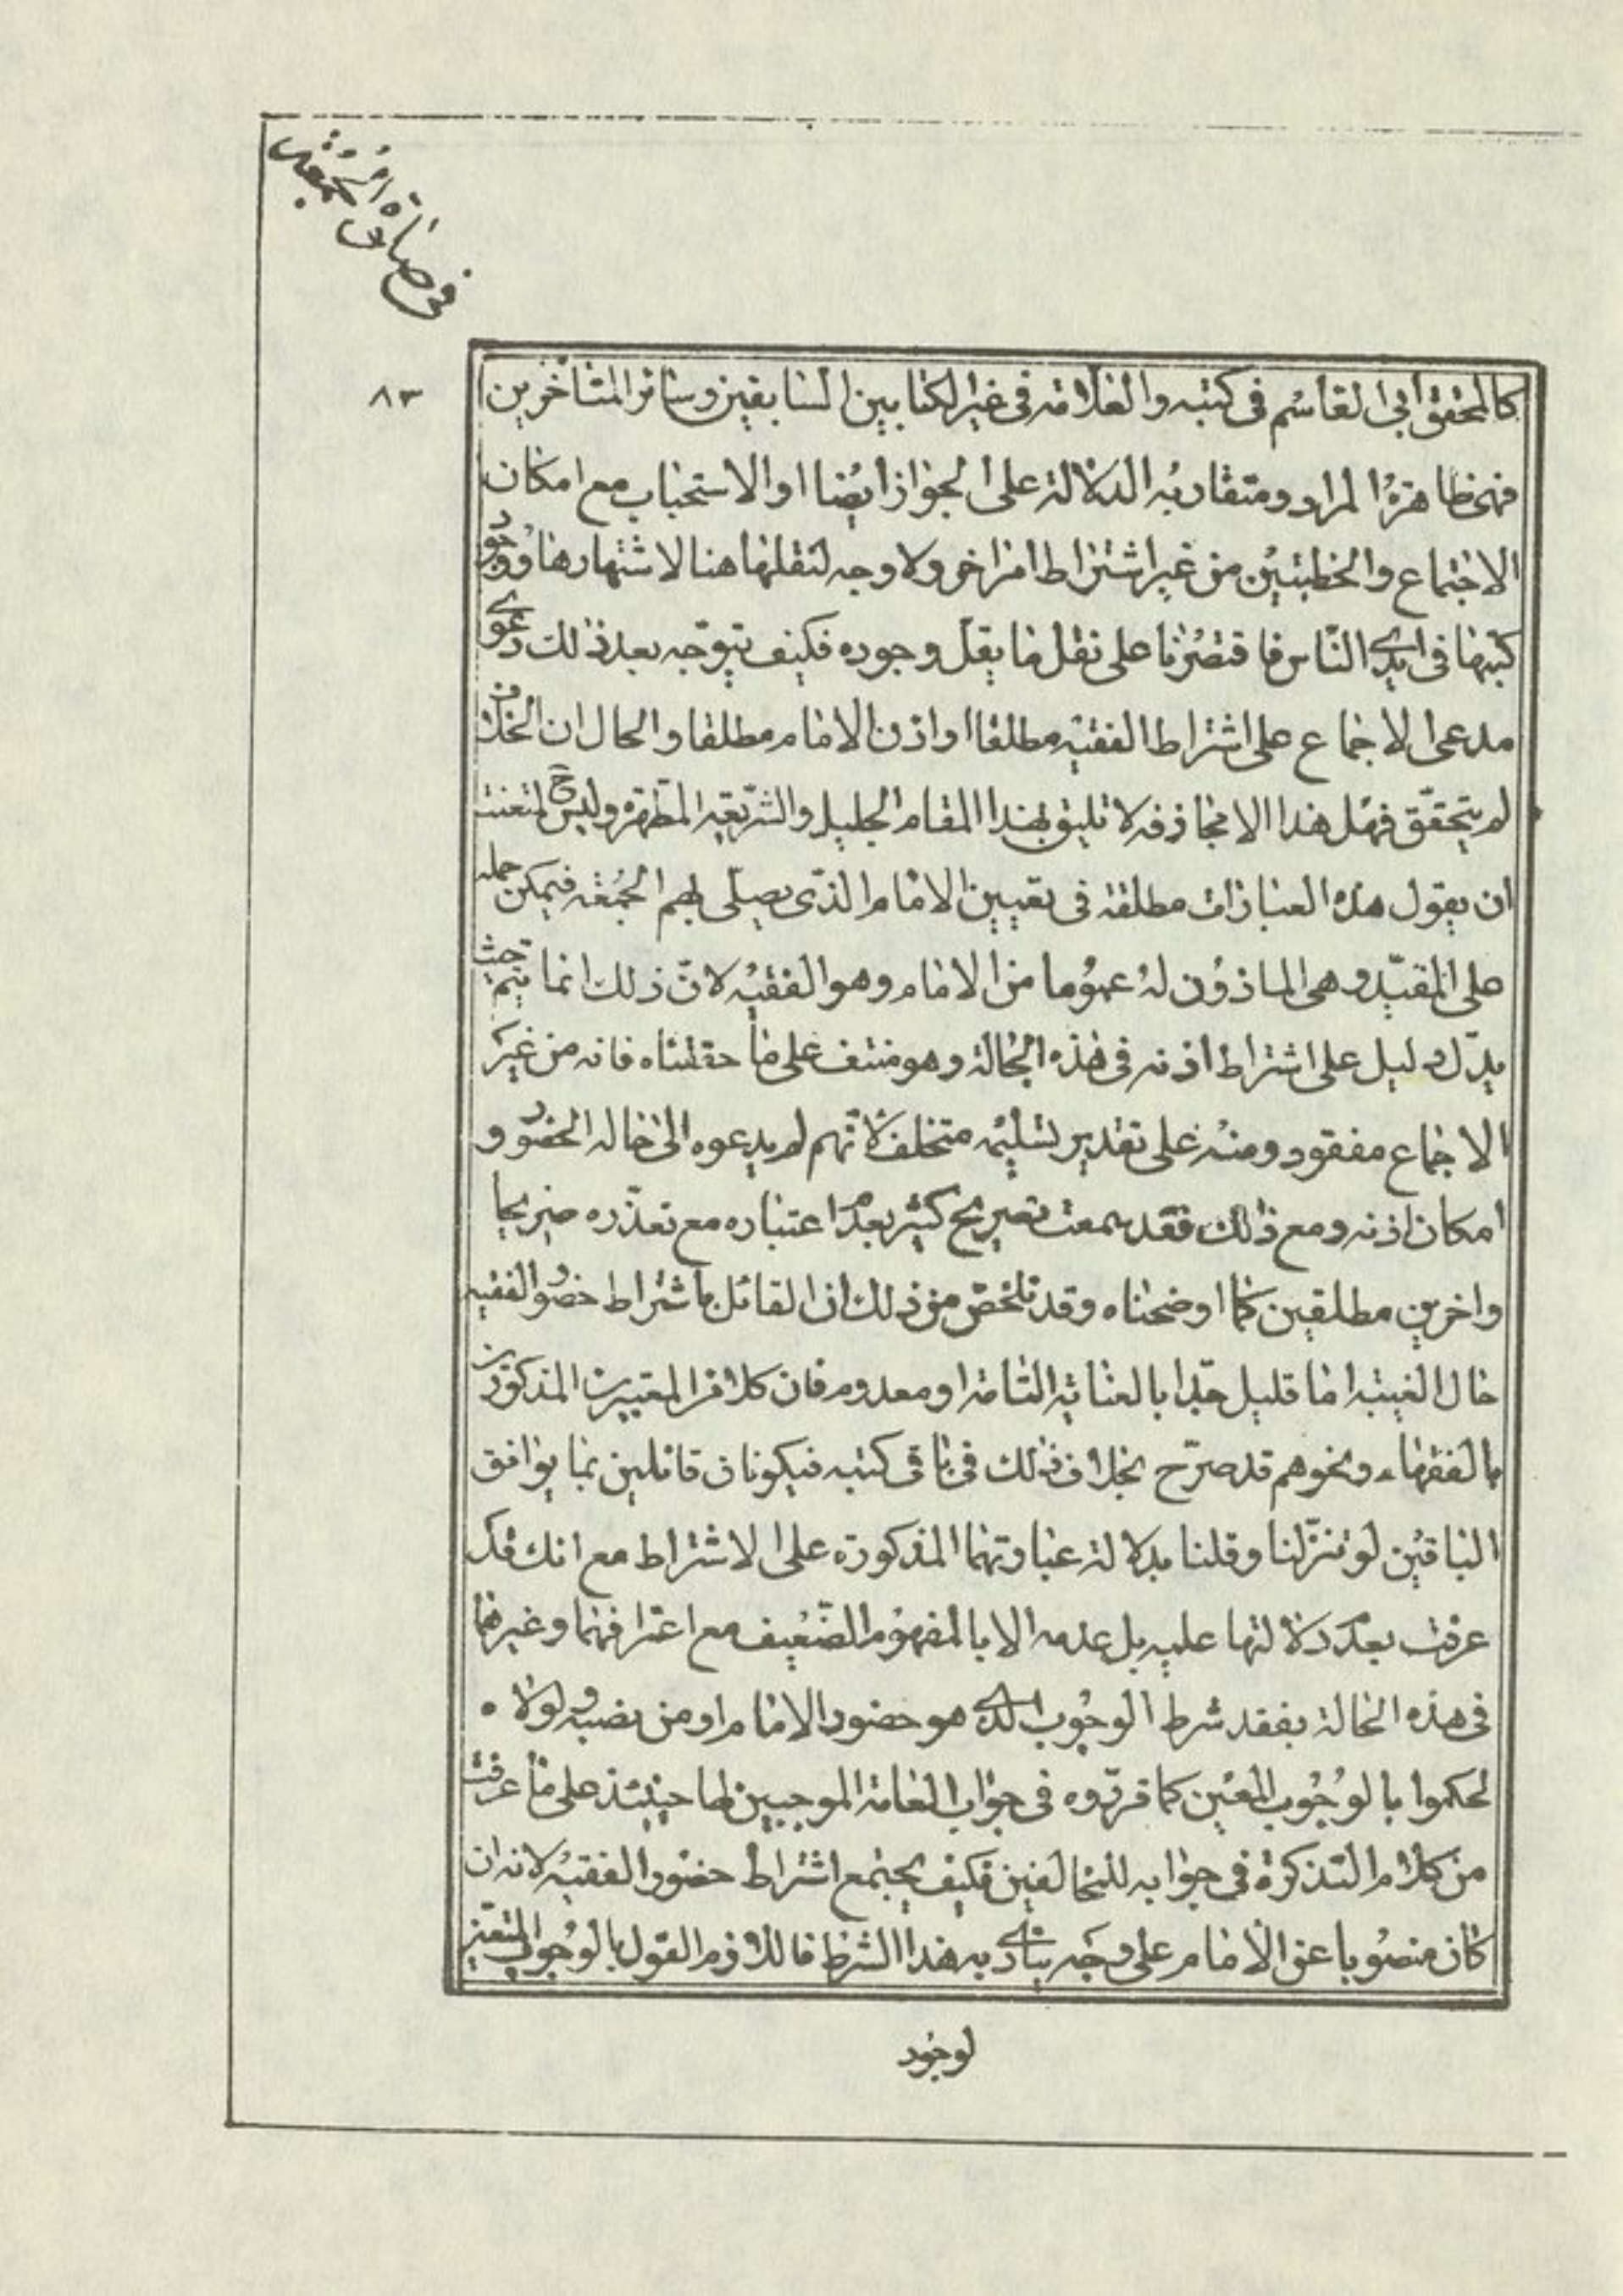 في صلاة الجمعة
٨٣
كالمحقق ابي القاسم في كتبه والعلامة في غير الكتابين السابقين وسائر المتأخرين
فهي ظاهرة المراد ومتقاربة الدلالة على الجواز ايضا او الاستحباب مع امكان
الاجتماع والخطبتين من غير اشتراط امر اخر ولا وجه لنقلها هنا لاشتهارها ووجود
كتبها في ايدي الناس فاقتصرنا على نقل ما يقل وجوده فكيف يتوجه بعد ذلك دعوى
مدعى الاجماع على اشتراط الفقيه مطلقا او اذن الامام مطلقا والحال ان الخلاف
لم يتحقق فهل هذا الا مجازفة لا تليق بهذا المقام الجليل والشريعة المطهرة وليس ح لمتعنت
ان يقول هذه العبارات مطلقة في تعيين الامام الذي يصلى بهم الجمعة فيمكن حمله
على المقيد وهى الماذون له عموما من الامام وهو الفقيه لان ذلك انما يتم حيث
يدل دليل على اشتراط اذنه في هذه الحالة وهو منتف على ما حققناه فانه من غير
الاجماع مفقود ومنه على تقدير تسليمه متخلف لانهم لم يدعوه الى حالة الحضور و
امكان اذنه ومع ذلك فقد سمعت تصريح كثير بعدم اعتباره مع تعذره صريحا
واخرين مطلقين كما اوضحناه وقد تلخص من ذلك ان القائل باشتراط حضور الفقيه
حال الغيبة اما قليل جدا بالعناية التامة او معدوم فان كلا من المعتبرين المذكورين
بالفقهاء ونحوهم قد صرح بخلاف ذلك في باقى كتبه فيكونان قائلين بما يوافق
الباقين لو تنزلنا وقلنا بدلالة عبارتهما المذكورة على الاشتراط مع انك قد
عرفت بعد دلالتها عليه بل عدمه الا بالمفهوم الضعيف مع اعترافهما وغيرهما
في هذه الحالة بفقد شرط الوجوب الذي هو حضور الامام او من نصبه ولولاه
لحكموا بالوجوب المعين كما قرروه في جواب العامة الموجبين لها حينئذ على ما عرفت
من كلام التذكرة في جوابه للمخالفين فكيف يجتمع اشتراط حضور الفقيه لانه ان
كان منصوبا عن الامام على وجه يتادى به هذا الشرط فاللازم القول بالوجوب المتعين
لوجود